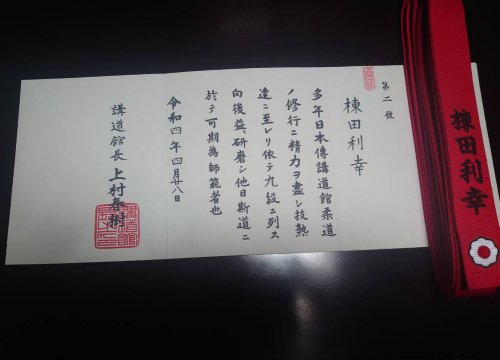 棟田利幸
第二號
棟田利幸
多年日本傳講道館柔道
ノ修行ニ精力ヲ盡シ技熟
達ニ至レリ依テ九段ニ列ス
向後益〻研磨シ他日斯道ニ
於テ可期為師範者也
令和四年四月廿八日
講道館長 上村春樹